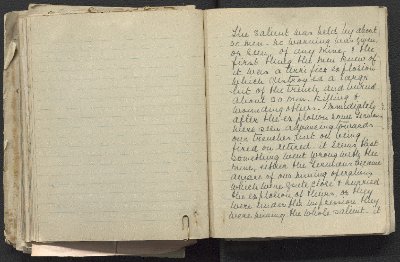 The salient was held by about
30 men. No warning was given,
or seen, of any mine, & the
first thing the men knew of
it was a terrific explosion
which destroyed a large
bit of the trench and buried
about 30 men, killing &
wounding others. Immediately
after the explosion some Germans
were seen advancing towards
our trenches but on being
fired on retired. It seems that
something went wrong with the
mine, either the Germans became
aware of our mining operations,
which were quite close & hurried
the explosion of theirs, or they
were under the impression they
were mining the whole salient. It